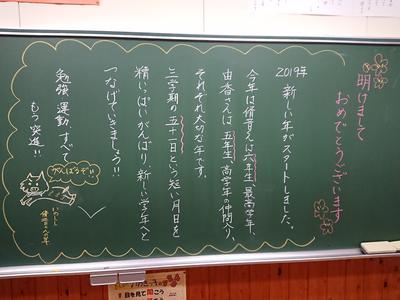 明けまして
おめでとうございます
2019年
新しい年がスタートしました。
今年は脩音くんは六年生、最高学年、
由香さんは五年生、高学年の仲間入り、
それぞれ大切な年です。
三学期の五十一日という短い月日を
精いっぱいがんばり、新しい学年へと
つなげていきましょう!!
勉強、運動、すべて
もう突進!!
がんばるぞ!!
いのしし